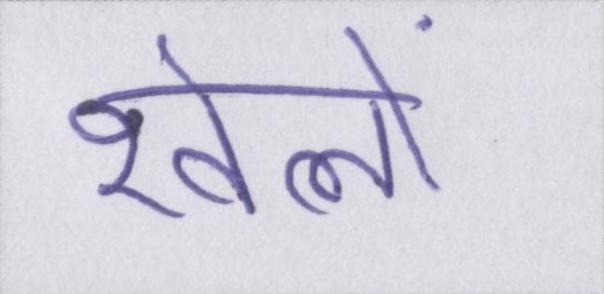 खेलों